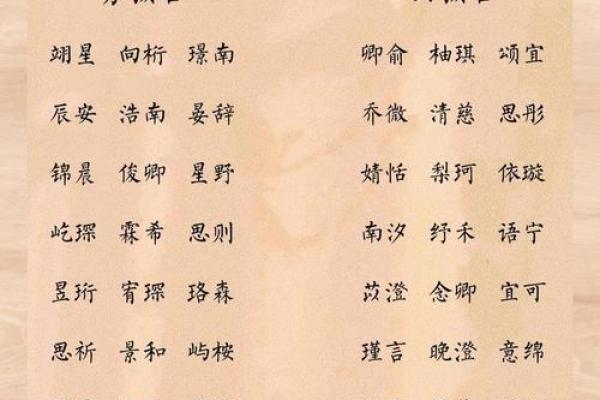 翊星 向桁 璟南
辰安 浩南 晏辞
锦晨 俊卿 星野
屹琛 霖希 思则
昱珩 宥琛 珞森
思祈 景和 屿桉
卿俞 柚琪 颂宜
乔微 清慈 思彤
婧恬 梨珂 依璇
南汐 纾禾 语宁
苡澄 念卿 宜可
瑾言 晚澄 意绵